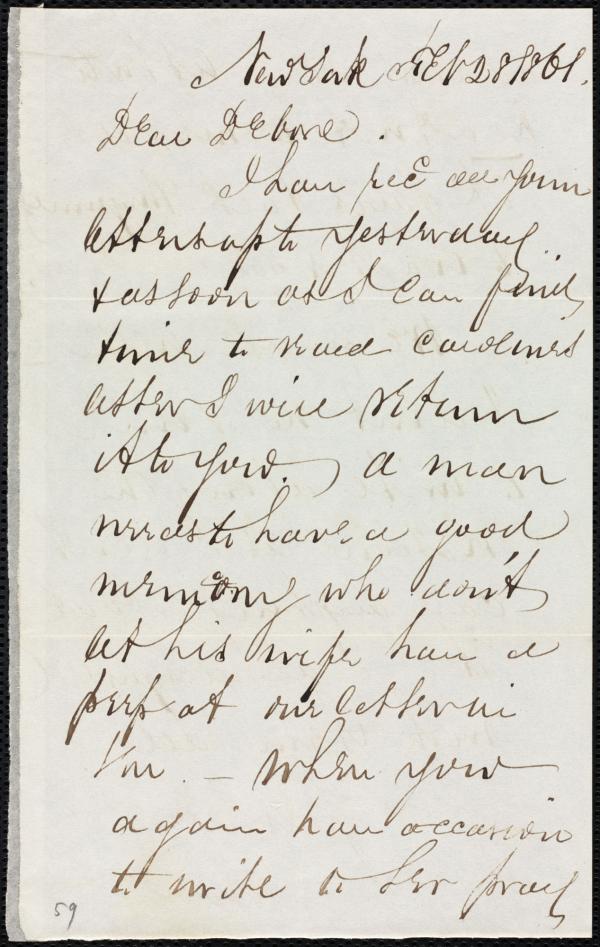 New York Feb 28 1861.
Dear Debora.
I have recd all your
letters up to yesterday
& as soon as I can find
time to read Carolines
letter I will return
it to you. a man
needs to have a good
memory who don't
let his wife have a
peep at one letter in
ten. – When you
again have occasion
to write to her pray
59